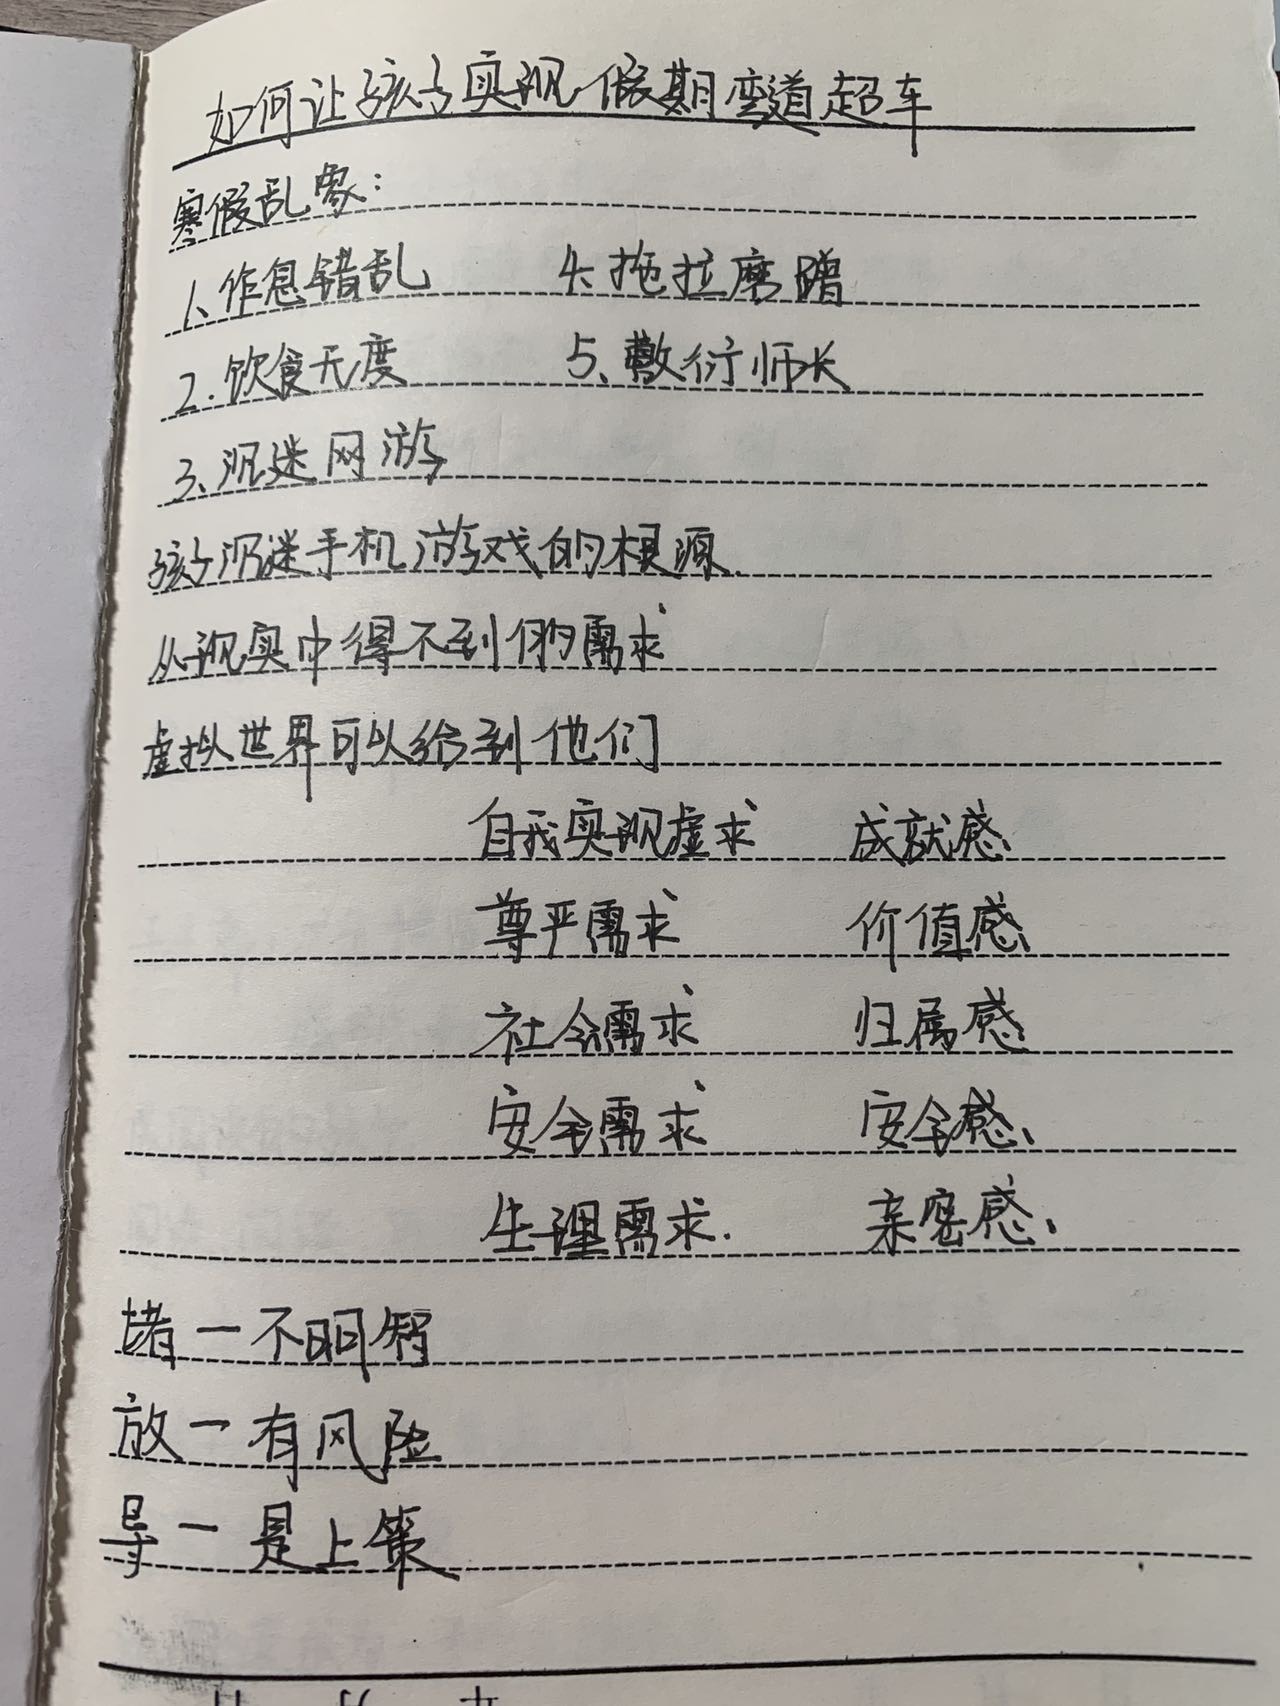 如何让孩子实现假期弯道超车
寒假乱象：
1、作息错乱 4、拖拉磨蹭
2.饮食无度 5、敷衍师长
3、沉迷网游
孩子沉迷手机游戏的根源.
从现实中得不到的需求
虚拟世界可以给到他们
自我实现虚求 成就感、
尊严需求 价值感、
社会需求 归属感
安全需求 安全感、
生理需求. 亲密感、
堵一不明智
放一有风险
导一是上策